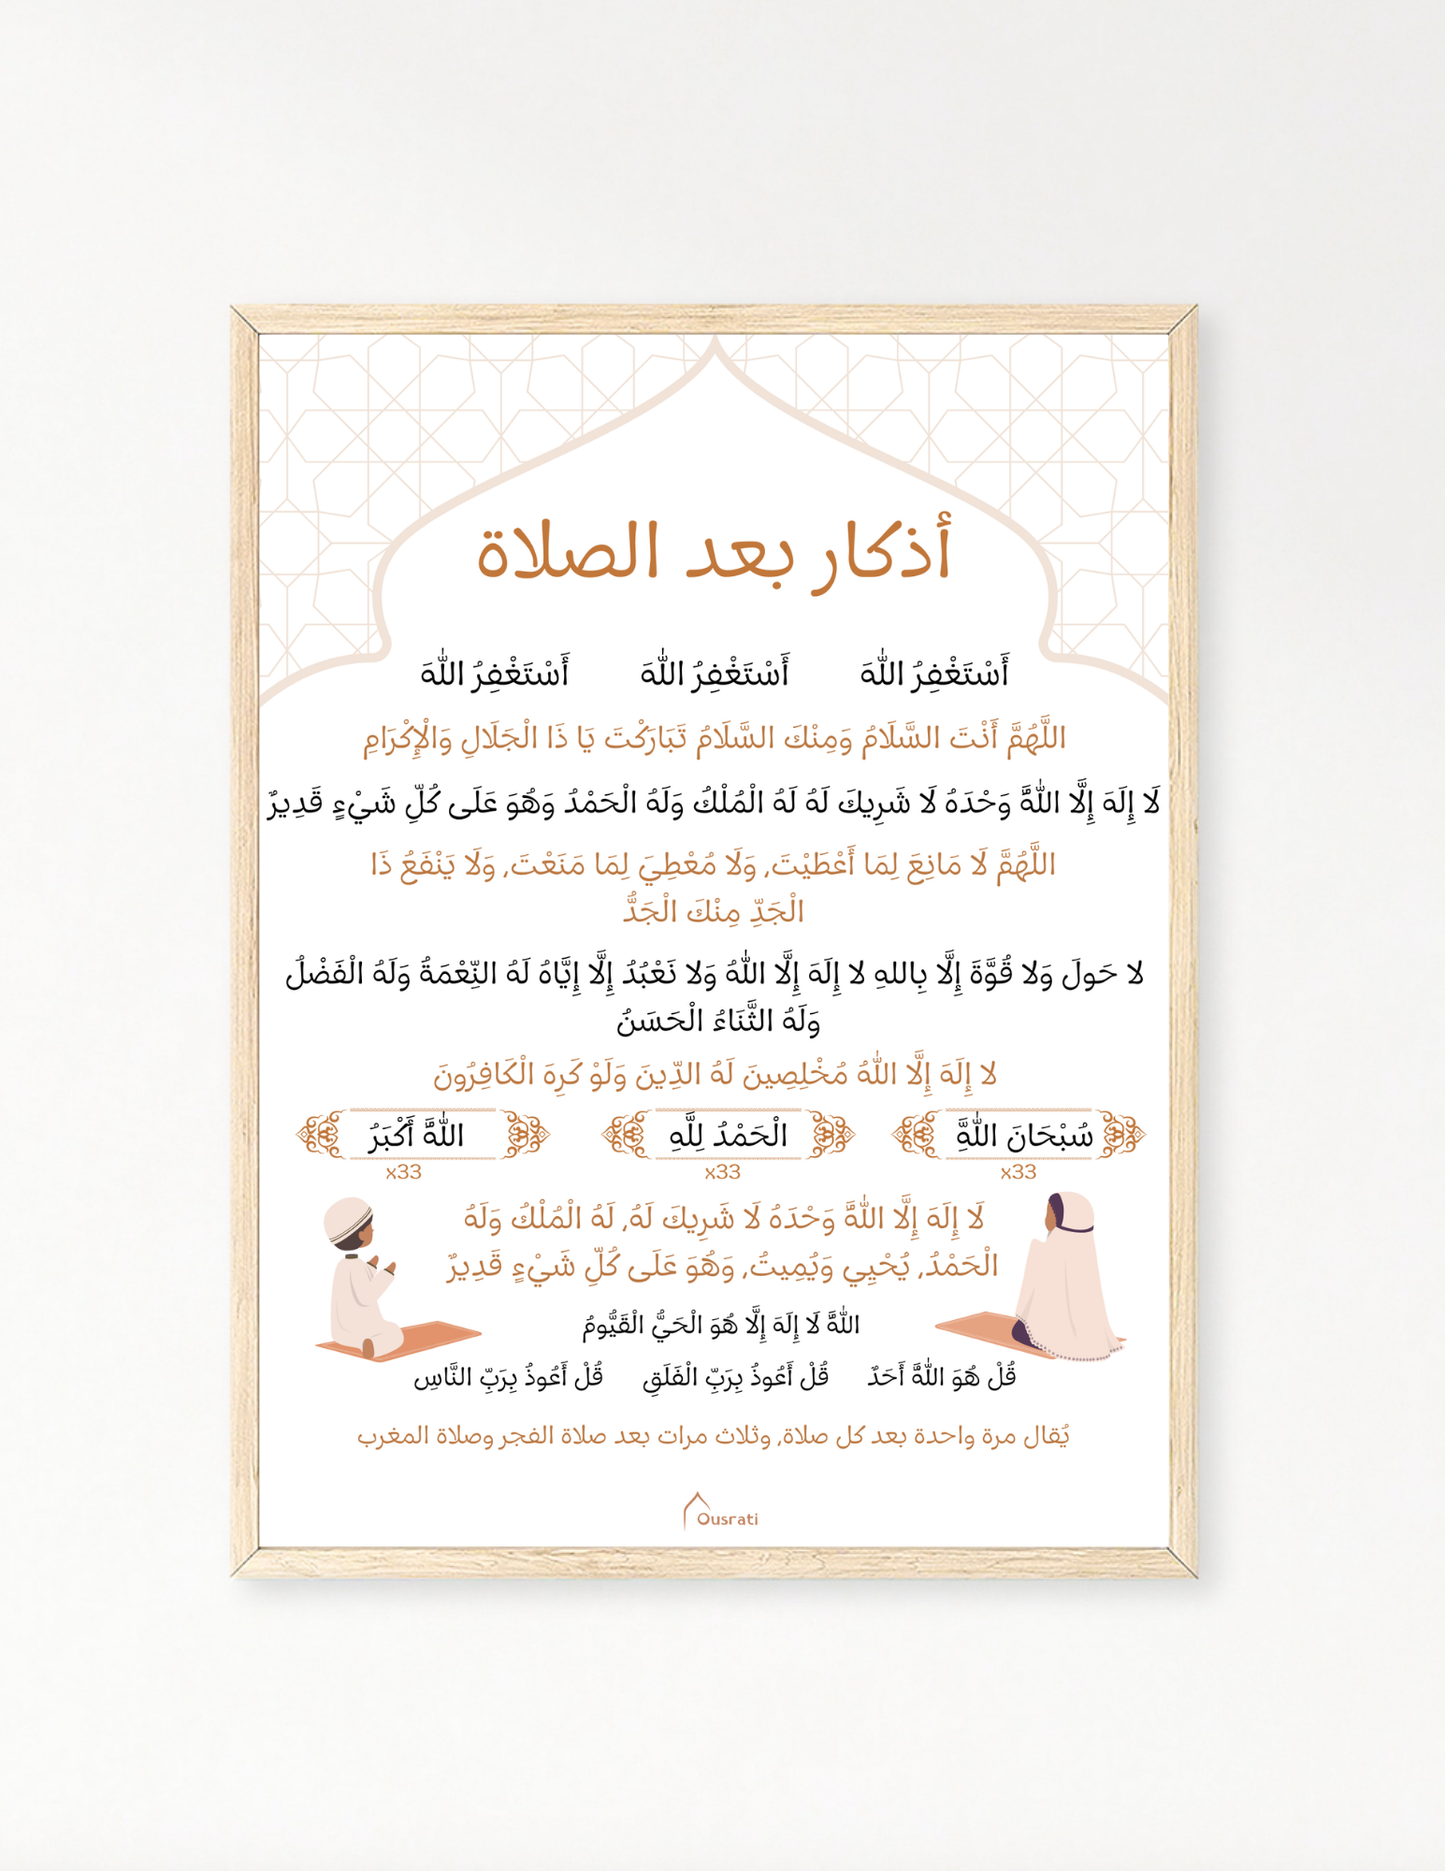 أذكار بعد الصلاة
أَسْتَغْفِرُ اللّٰهَ أَسْتَغْفِرُ اللّٰهَ أَسْتَغْفِرُ اللّٰهَ
اللَّهُمَّ أَنْتَ السَّلَامُ وَمِنْكَ السَّلَامُ تَبَارَكْتَ يَا ذَا الْجَلَالِ وَالْإِكْرَامِ
لَا إِلَهَ إِلَّا اللّٰهَُ وَحْدَهُ لَا شَرِيكَ لَهُ لَهُ الْمُلْكُ وَلَهُ الْحَمْدُ وَهُوَ عَلَى كُلِّ شَيْءٍ قَدِيرٌ
اللَّهُمَّ لَا مَانِعَ لِمَا أَعْطَيْتَ, وَلَا مُعْطِيَ لِمَا مَنَعْتَ, وَلَا يَنْفَعُ ذَا
الْجَدِّ مِنْكَ الْجَدُّ
لا حَولَ وَلا قُوَّةَ إِلَّا بِاللهِ لا إِلَهَ إِلَّا اللّٰهُ وَلا نَعْبُدُ إِلَّا إِيَّاهُ لَهُ النِّعْمَةُ وَلَهُ الْفَضْلُ
وَلَهُ الثَّنَاءُ الْحَسَنُ
لا إِلَهَ إِلَّا اللّٰهُ مُخْلِصِينَ لَهُ الدِّينَ وَلَوْ كَرِهَ الْكَافِرُونَ
سُبْحَانَ اللّٰهَِ الْحَمْدُ لِلَّهِ اللّٰهَُ أَكْبَرُ
x33 x33 x33
لَا إِلَهَ إِلَّا اللّٰهَُ وَحْدَهُ لَا شَرِيكَ لَهُ, لَهُ الْمُلْكُ وَلَهُ
الْحَمْدُ, يُحْيِي وَيُمِيتُ, وَهُوَ عَلَى كُلِّ شَيْءٍ قَدِيرٌ
اللّٰهَُ لَا إِلَهَ إِلَّا هُوَ الْحَيُّ الْقَيُّومُ
قُلْ هُوَ اللّٰهَُ أَحَدٌ قُلْ أَعُوذُ بِرَبِّ الْفَلَقِ قُلْ أَعُوذُ بِرَبِّ النَّاسِ
يُقال مرة واحدة بعد كل صلاة, وثلاث مرات بعد صلاة الفجر وصلاة المغرب
Ousrati